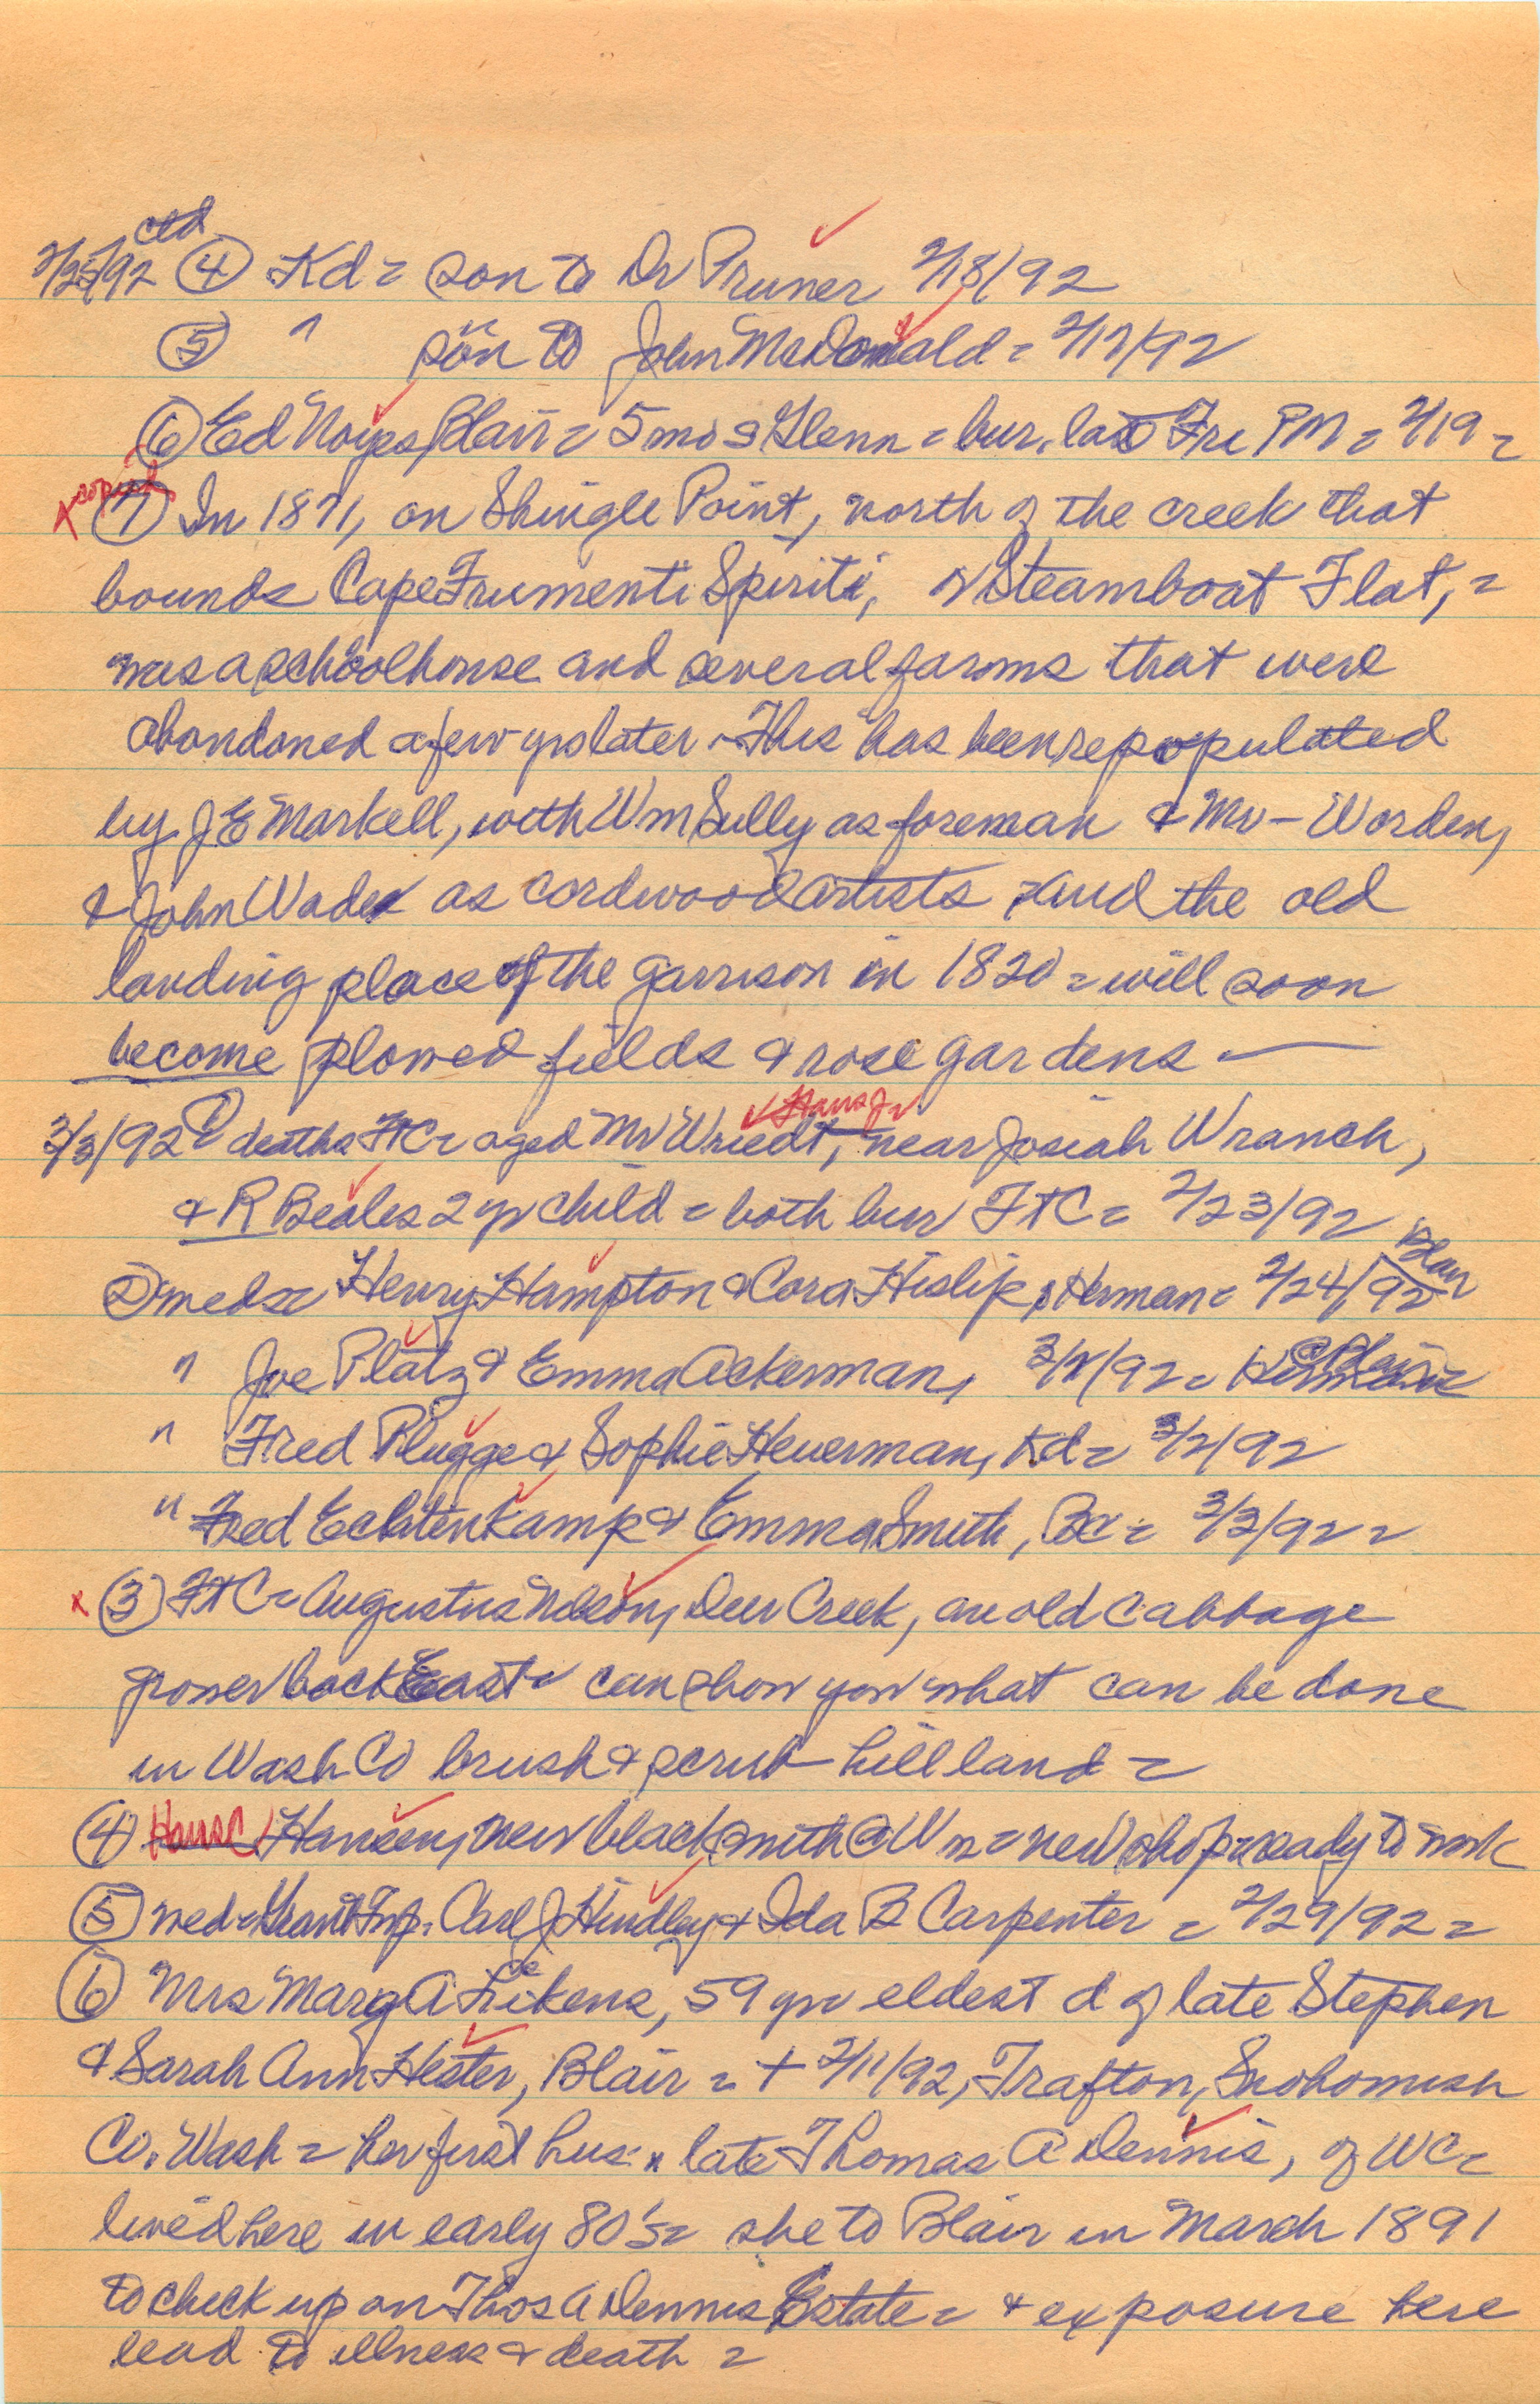 ctd
2/25/92 ④ Kd = son to Dr Pruner 2/18/92
⑤ " son to John McDonald = 2/17/92
⑥ Ed Noyes, Blair = 5 mo s Glenn = bur. last Fri PM = 2/19 =
x copied
⑦ In 1871, on Shingle Point, north of the creek that
bounds Cape Frumenti Spiriti, or Steamboat Flat, =
was a schoolhouse and several farms that were
abandoned a few yrs later. This has been repopulated
by J E Markell, with Wm Sully as foreman & Mr – Worden,
& John Wade as cordwood artists = and the old
landing place of the garrison in 1820 = will soon
become plowed fields & rose gardens —
Hans Jr
3/3/92 ① deaths FtC = aged Mr Wriedt, near Josiah Wranch,
& R Beales 2 yr child = both bur FtC = 2/23/92
② med = Henry Hampton & Cora Hislip, Herman = 2/24/92 Blair
" Joe Platz & Emma Ackerman, 3/2/92 = @ Blair
" Fred Plugge & Sophie Heuerman, Kd = 3/2/92
" Fred Echtenkamp & Emma Smith, = 3/3/92 =
x ③ FtC = Augustus Nelson, Deer Creek, an old cabbage
grower back East = can show you what can be done
in Wash Co brush & scrub hill land =
④ Hans C Hansen, new blacksmith @ Wn = new shop = ready to work
⑤ med = Grant Twp. Carl J Hindley & Ida B Carpenter = 2/29/92 =
⑥ Mrs Marg A Likens, 59 yr eldest d of late Stephen
& Sarah Ann Hester, Blair = + 2/11/92, Trafton, Snohomish
Co. Wash = her first hus. late Thomas A Dennis, of WC =
lived here in early 80's = she to Blair in March 1891
to check up on Thos A Dennis Estate = & exposure here
lead to illness & death =